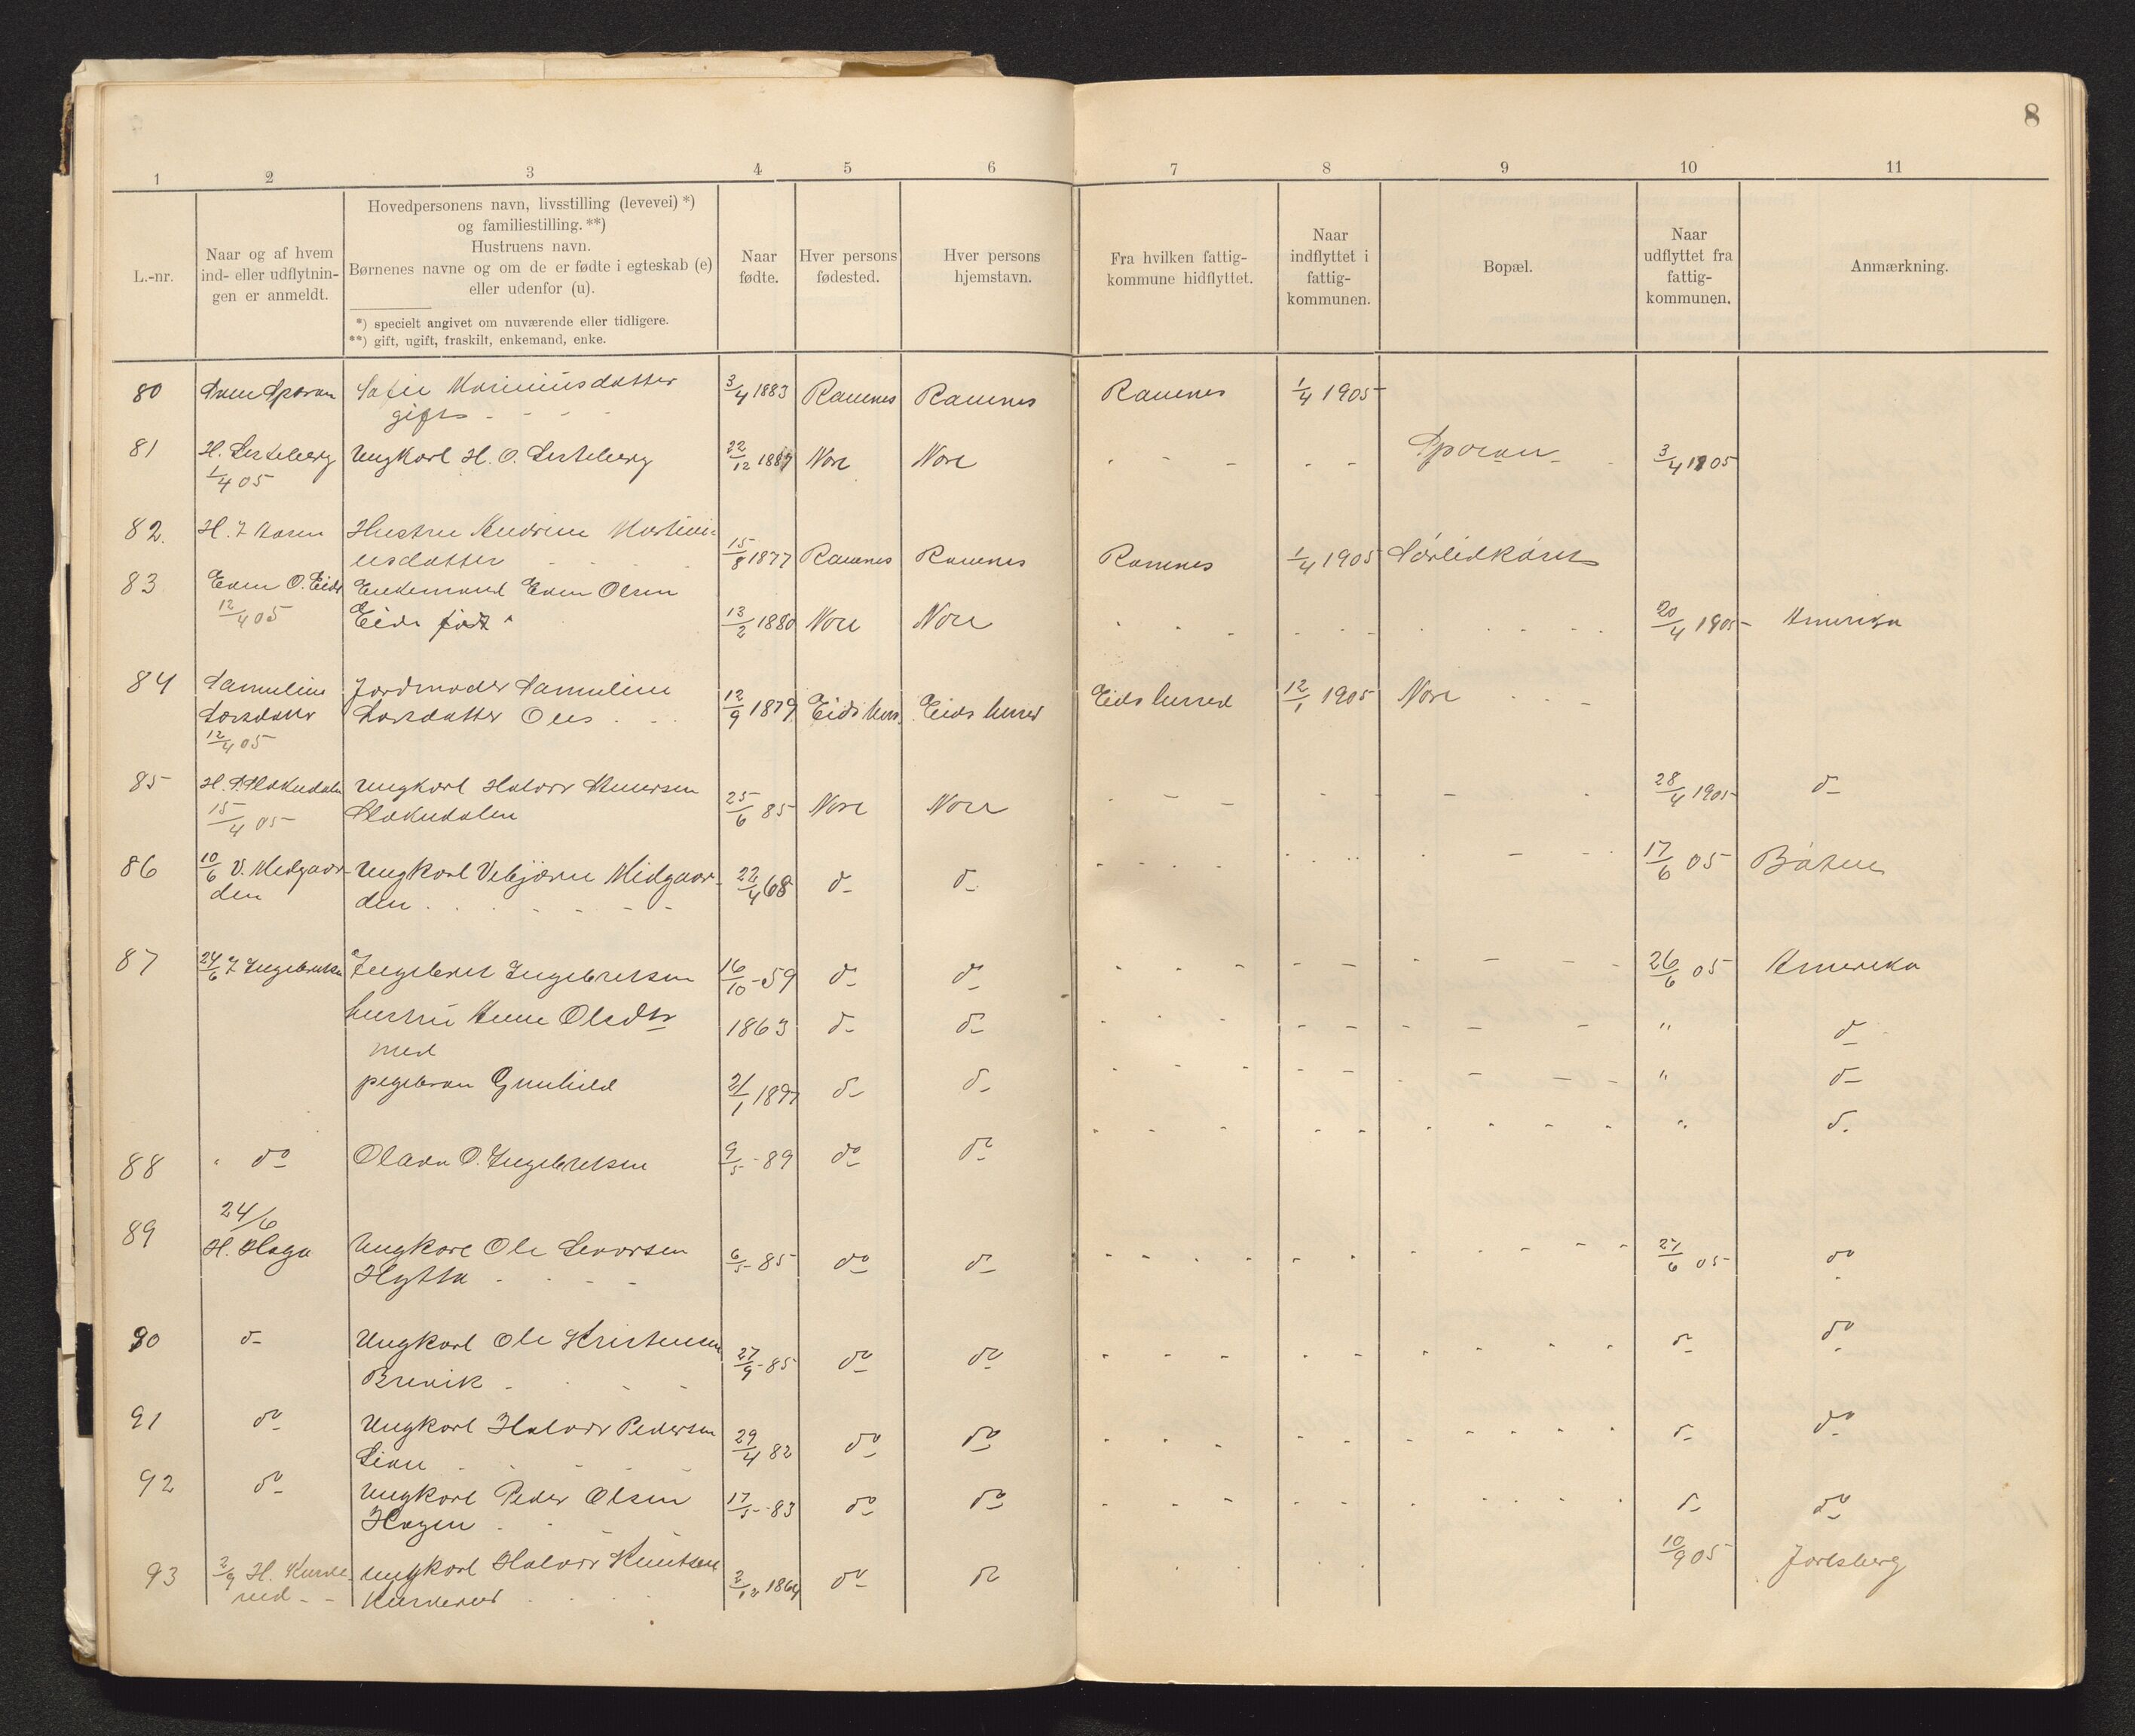 8
1 2 3 4 5 6 7 8 9 10 11
L.-nr.
Naar og af hvem
ind- eller udflytnin-
gen er anmeldt.
Hovedpersonens navn, livsstilling (levevei) *)
og familiestilling. **)
Hustruens navn.
Børnenes navne og om de er fødte i egteskab (e)
eller udenfor (u).
*) specielt angivet om nuværende eller tidligere.
**) gift, ugift, fraskilt, enkemand, enke.
Naar
fødte.
Hver persons
fødested.
Hver persons
hjemstavn.
Fra hvilken fattig-
kommune hidflyttet.
Naar
indflyttet i
fattig-
kommunen.
Bopæl.
Naar
udflyttet fra
fattig-
kommunen.
Anmærkning.
80 Sporan Sofie 3/4 1883 Ramnes Ramnes Ramnes 1/4 1905
gift
81 H. Lesteberg Ungkarl H. O. Lesteberg 22/12 Nore Nore Sporan 3/4 1905
1/4 05
82. H. Hustru Andrine Martini-
usdatter 15/8 1877 Ramnes Ramnes Ramnes 1/4 1905
83 Even O. Eide Enkemand Even Olsen
12/4 05 Eide født 13/2 1880 Nore Nore 20/4 1905 Amerika
84 Samuline Jordmoder Samuline
Larsdatter Larsdatter Oles 12/9 1879 Eids herr. Eids herred Eids herred 12/1 1905 Nore
12/4 05
85 Ungkarl Halvor
15/4 05 25/6 85 Nore Nore 28/4 1905 do
86 10/6 V. Midgaar- Ungkarl Vebjørn Midgaar-
den den 22/4 68 do do 17/6 05
87 24/6 I. Ingebretsen Ingebret Ingebretsen 16/10-59 do do 26/6 05 Amerika
hustru Anne Olsdtr 1863 do do " do
med
Gunhild 21/1 do do " do
88 " do Olava O. Ingebretsen 9/5-89 do do " do
89 24/6
H. Haga Ungkarl Ole Levorsen
Hytta 6/5-85 do do 27/6 05 do
90 do Ungkarl Ole Kristensen
Brevik 27/9-85 do do do do
91 do Ungkarl Halvor Pedersen
Lien 29/4 82 do do do do
92 do Ungkarl Peder Olsen
Hagen 17/5-83 do do do do
93 2/9 H. Ungkarl Halvor Knutsen
2/12 1864 do do 10/9 05 Jarlsberg